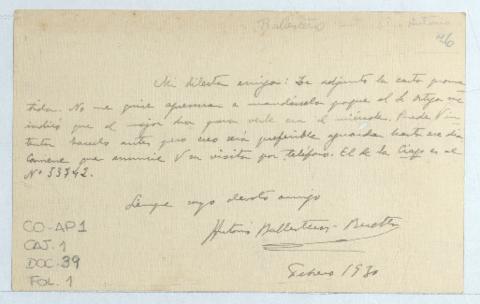 Ballesteros Antonio
46
Mi dilecta amiga: Le adjunto la carta prome-
tida. No me quise apresurar a mandársela porque el Sr. Ortega me
indicó que el mejor dia para verle era el miércoles. Puede V in-
tentar hacerlo antes pero creo será preferible aguardar hasta ese dia
Conviene que anuncie V su visita por teléfono. El de la Ciap es el
Nº 33742.
Siempre suyo devoto amigo
Antonio Ballesteros-Beretta
Febrero 1930
CO-AP1
CAJ. 1
DOC. 39
FOL. 1